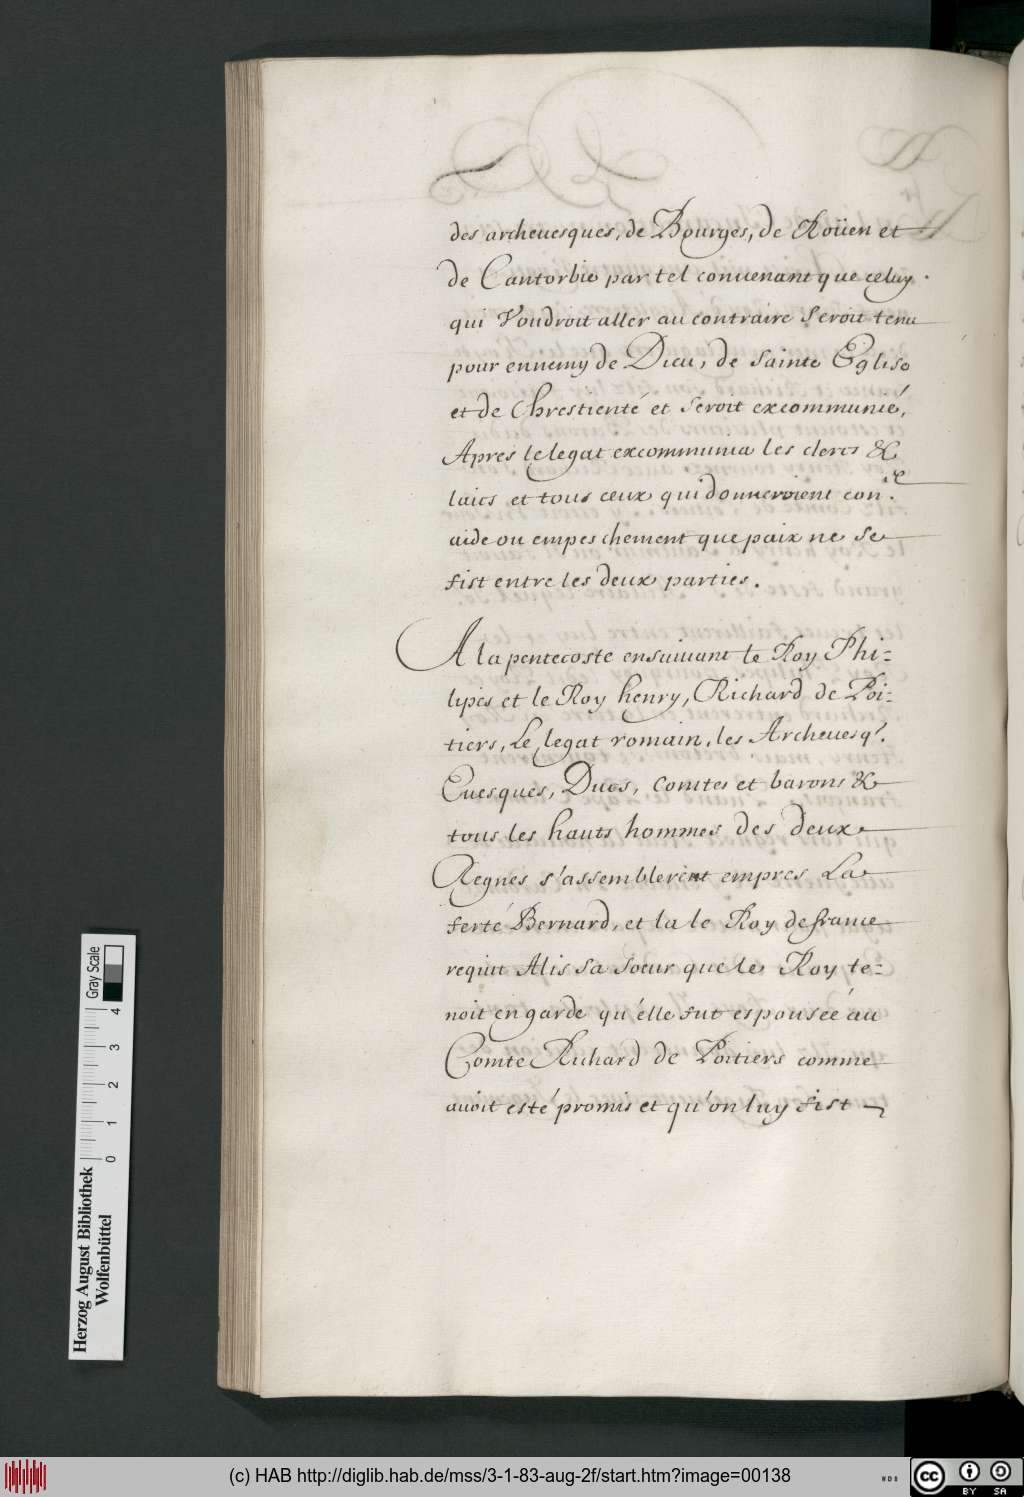 des archeuesques, de Bourges, de Roüen et
de Cantorbie par tel conuenant que celuy
qui Voudroit aller au contraire seroit tenu
pour ennemy de Dieu, de sainte Eglise
et de Chrestienté et seroit excommunié,
Apres le legat excommunia les clercs &
laics et tous ceux qui donneroient con.re
aide ou empeschement que paix ne se
fist entre les deux parties.
A la pentecoste ensuiuant le Roy Phi-
lipes et le Roy henry, Richard de Poi-
tiers, Le legat romain, les Archeuesq.
Euesques, Ducs, Comtes et barons &
tous les hauts hommes des deux
Regnes s'assemblerent empres La
ferté Bernard, et la le Roy de france
requit Alis sa soeur que le Roy te-
noit en garde qu'elle fut espousée au
Comte Richard de Poitiers comme
auoit esté promis et qu'on luy fist
Herzog August Bibliothek
Wolfenbüttel
0 1 2 3 4
Gray Scale
(c) HAB http://diglib.hab.de/mss/3-1-83-aug-2f/start.htm?image=00138
WDB
cc
BY SA